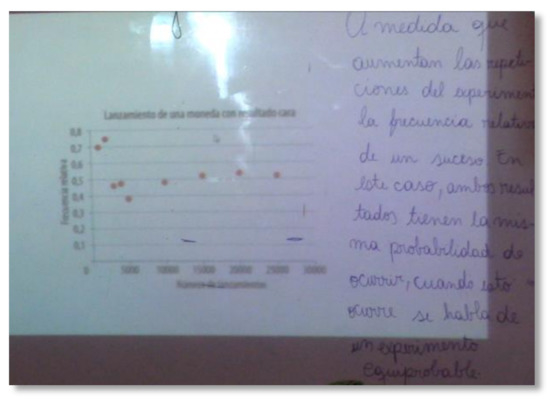 Lanzamiento de una moneda con resultado cara
Frecuencia relativa
0,8
0,7
0,6
0,5
0,4
0,3
0,2
0,1
0 5000 10000 15000 20000 25000 30000
Número de lanzamientos
A medida que
aumentan las repeti-
ciones del experimen
la frecuencia relativa
de un suceso En
este caso, ambos resul
tados tienen la mis-
ma probabilidad de
ocurrir, cuando esto
ocurre se habla de
un experimento
equiprobable.